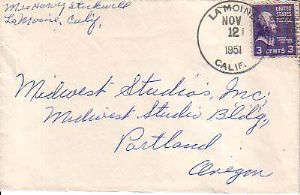 Mrs Harvy Stockwell
LaMoine, Calif.
LA MOINE
NOV
12
1951
CALIF.
3 CENTS 3
Midwest Studios, Inc;
Midwest Studio Bldg,
Portland
Oregon